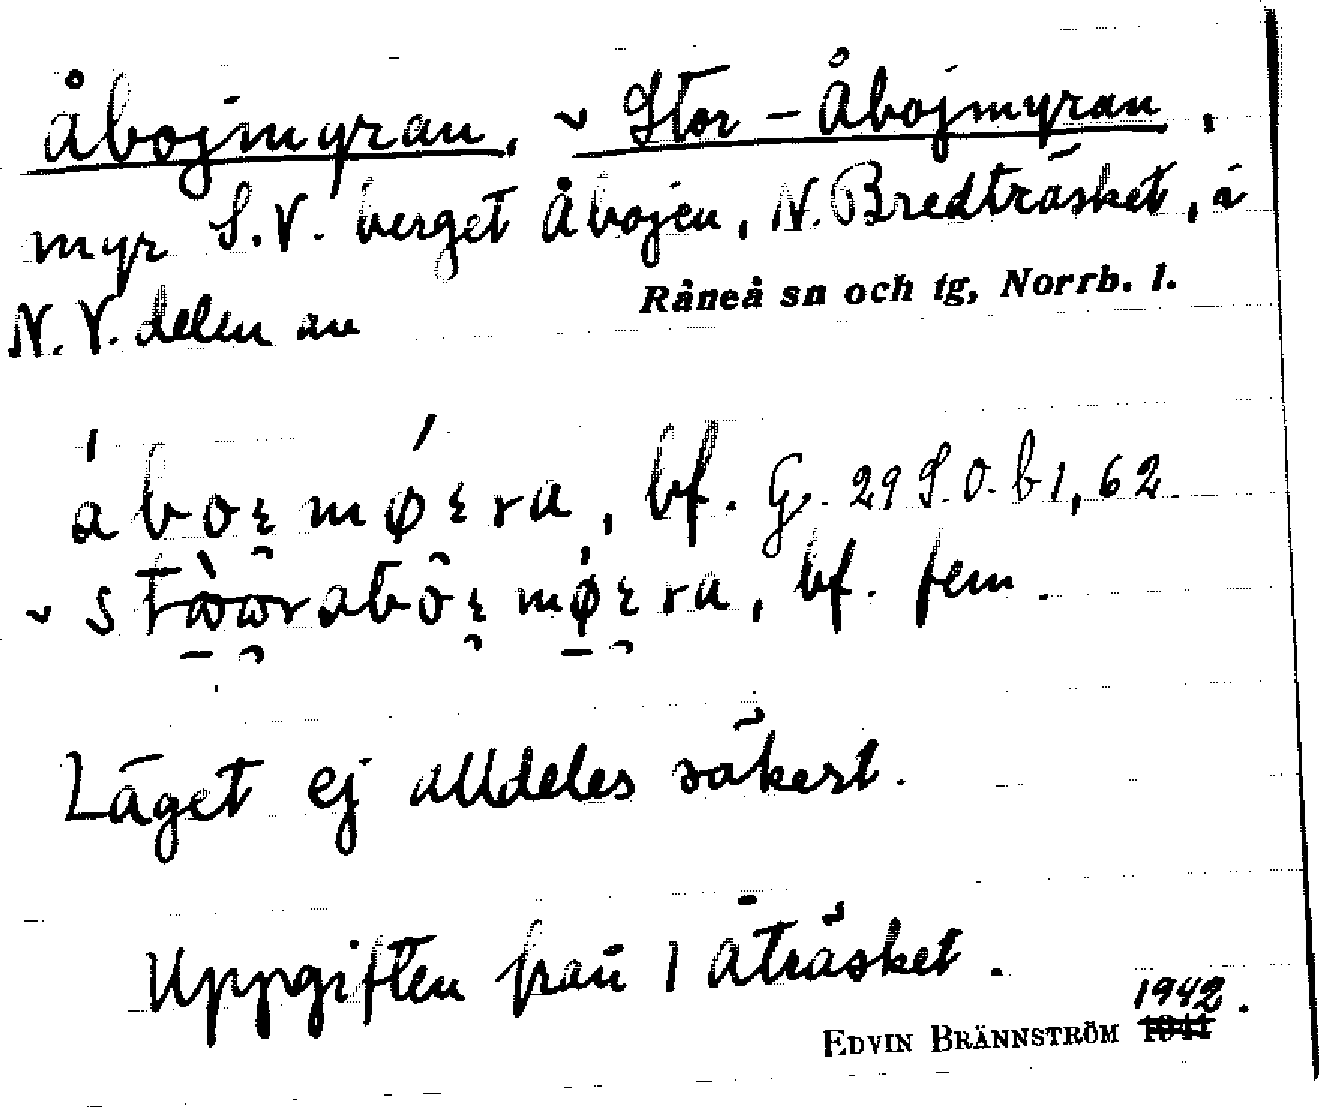 Åbojmyran, ~ Stor-Åbojmyran,
myr S.V. berget Åbojen, N. Bredträsket, i
N.V. delen av Råneå sn och tg, Norrb. l.
bf. G. 29 S.O. b 1, 62
bf. fem.
Läget ej alldeles säkert.
Uppgiften från 1 Åträsket.
EDVIN BRÄNNSTRÖM 1942.